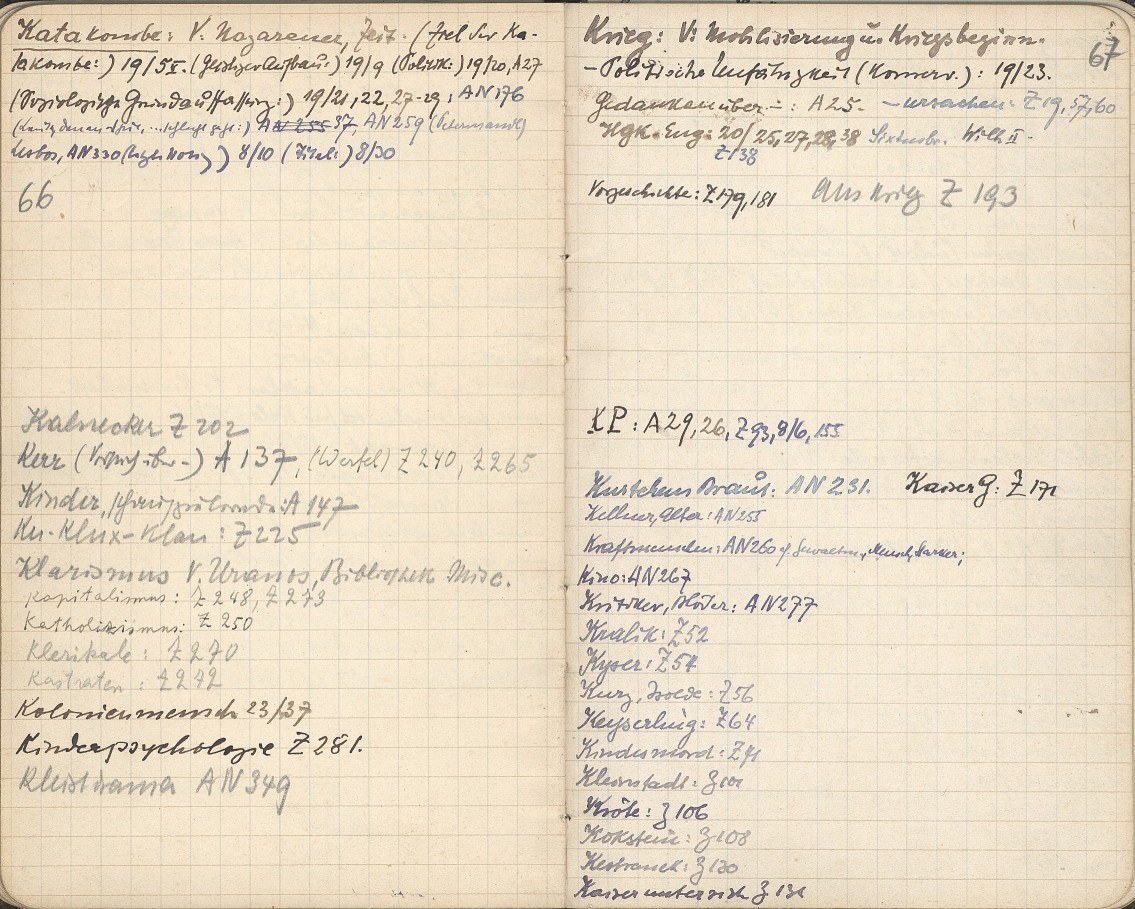 Katakombe: V. Nazarener, Zeit. (Ziel der Ka-
takombe:) 19/5 I. (Geistiger Aufbau:) 19/9 (Politik:) 19/20, A27
(Soziologische Grundauffassung:) 19/21, 22, 27-29, AN 176
AN 255 37, AN 259
Lesbos, AN 330 8/10 (Titel:) 8/30
66
Kalnecker Z 202
Kerr (Versuch über -) A 137, (Werfel) Z 240, Z 265
Kinder, A 147
Ku-Klux-Klan: Z 225
Klarismus V. Uranos, Bibliothek Misc.
Kapitalismus: Z 248, Z 273
Katholizismus: Z 250
Klerikale: Z 270
Kastraten: Z 242
Kolonienmensch 23/37
Kinderpsychologie Z 281.
Kleistdrama AN 349
67
Krieg: V: Mobilisierung u. Kriegsbeginn.
- Politische Unfähigkeit (Konserv.): 19/23.
Gedanken über -: A 25. - ursachen: Z 19, 57, 60
HGK. Eng: 20/25, 27, 28, 38 Wilh II -
Z 138
Vorgeschichte: Z 179, 181 Aus Krieg Z 193
KP: A 29, 26, Z 93, 8/6, 155
AN 231. Kaiser G: Z 171
Kellner, Alter: AN 255
Kraftmenschen: AN 260
Kino: AN 267
Kritiker, AN 277
Kralik: Z 52
Kyser: Z 54
Kurz, Isolde: Z 56
Keyserling: Z 64
Kindesmord: Z 71
Kleinstadt: Z 101
Kröte: Z 106
Kokstein: Z 108
Kestranek: Z 130
Kaiser unter sich Z 131